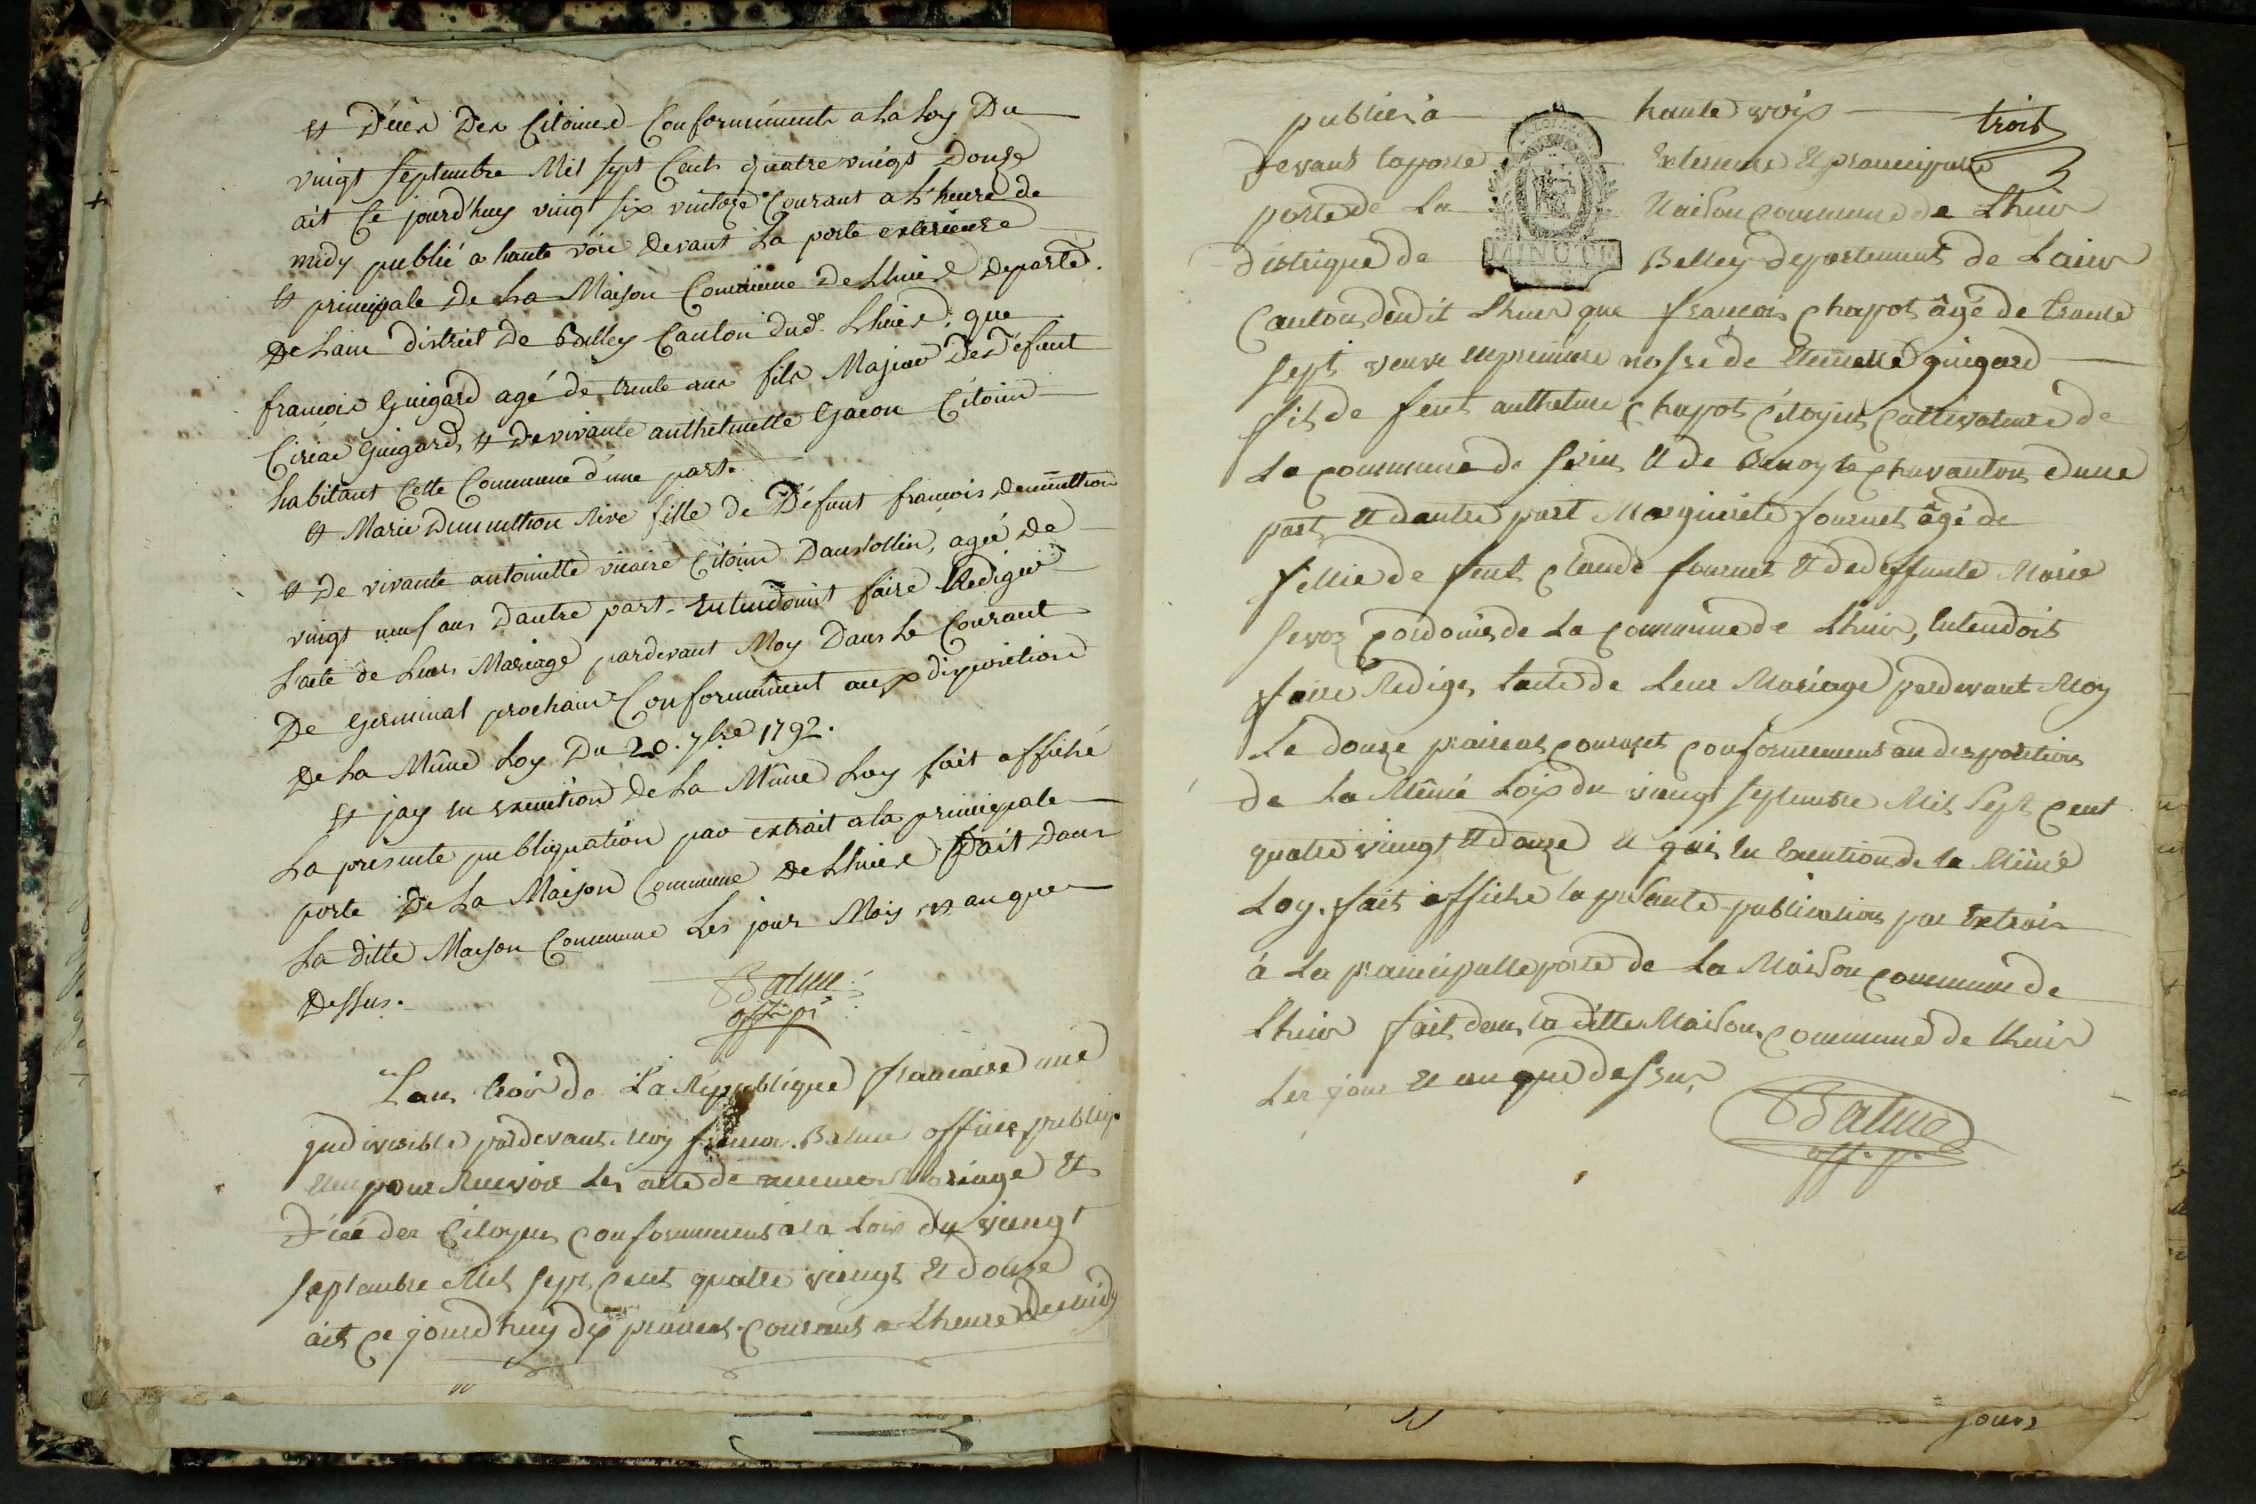 et Décés Des Citoiens Conformément a La Loy Du
vingt Septembre Mil sept Cents quatre vingt Douze
ait Ce jourd'huy vingt six vintoze Courant a L'heure de
midy publié a haute voie Devant La porte exterieure
et principale De La Maison Commune De Lhuis Departe.
De Lain district De Belley Canton dud. Lhuis; que
francois Guigard agé de trente ans fils Majeur De Défunt
Ciriac Guigard, et De vivante anthelmette Gacon Citoien
habitant Cette Commune d'une part.
et Marie Dumollion Rive fille de Défunt francois Dumollion
et De vivante antoinette vicaire Citoien Danstollin, agée De
vingt neuf ans Dautre part. Entendoint faire Rediger
L'acte de Leur Mariage pardevant Moy Dans Le Courant
De Germinal prochain Conformément aux disposition
De La Même Loy Du 20. 7bre 1792.
et jay en execution De La Même Loy fait affiché
La presente publiquation par extrait a la principale
porte De La Maison Commune De Lhuis fait Dans
La ditte Maison Commune Les jour Mois et an que
Dessus.
Balme
off. p.
Lan trois de La République francaise une
indivisible pardevant Moy Balme officier public
Elu pour Recevoir Les acte de Mariage Et
Décé des Citoyens conformement à la Loix du vinngt
septembre Mil sept cent quatre vinngt Et Douze
ait ce jourdhuy dix prairial courant a Lheure De midy
publier à haute voix
trois
3
devant la porte Exterieure Et principale
porte de La Maison commune de Lhuis
MINUTE
district de Belley departement de Lain
Canton dudit Lhuis que francois Chapot âgé de trante
sept veuve En premiere nosse de guigard
fils de feut anthelme Chapot Citoyen Cultivateur de
La commune de Et de Chavanton dune
part Et dautre part Marguerite fournet âgé de
fillie de feut Claude fournet Et de deffunte Marie
de La commune de Lhuis, Entendoit
faire Rediger lacte de Leur Mariage pardevant Moy
Le douze prairial courant conformement au disposition
de La Même Loix du vinngt septembre Mil sept cent
quatre vinngt Et douze Et jais En Execution de la Même
Loy. fait affiche la présante publication par Extrait
à La principalle porte de La Maison commune de
Lhuis fait dans la ditte Maison commune de Lhuis
Les jour Et an que dessus
Balme
off. p.
jours